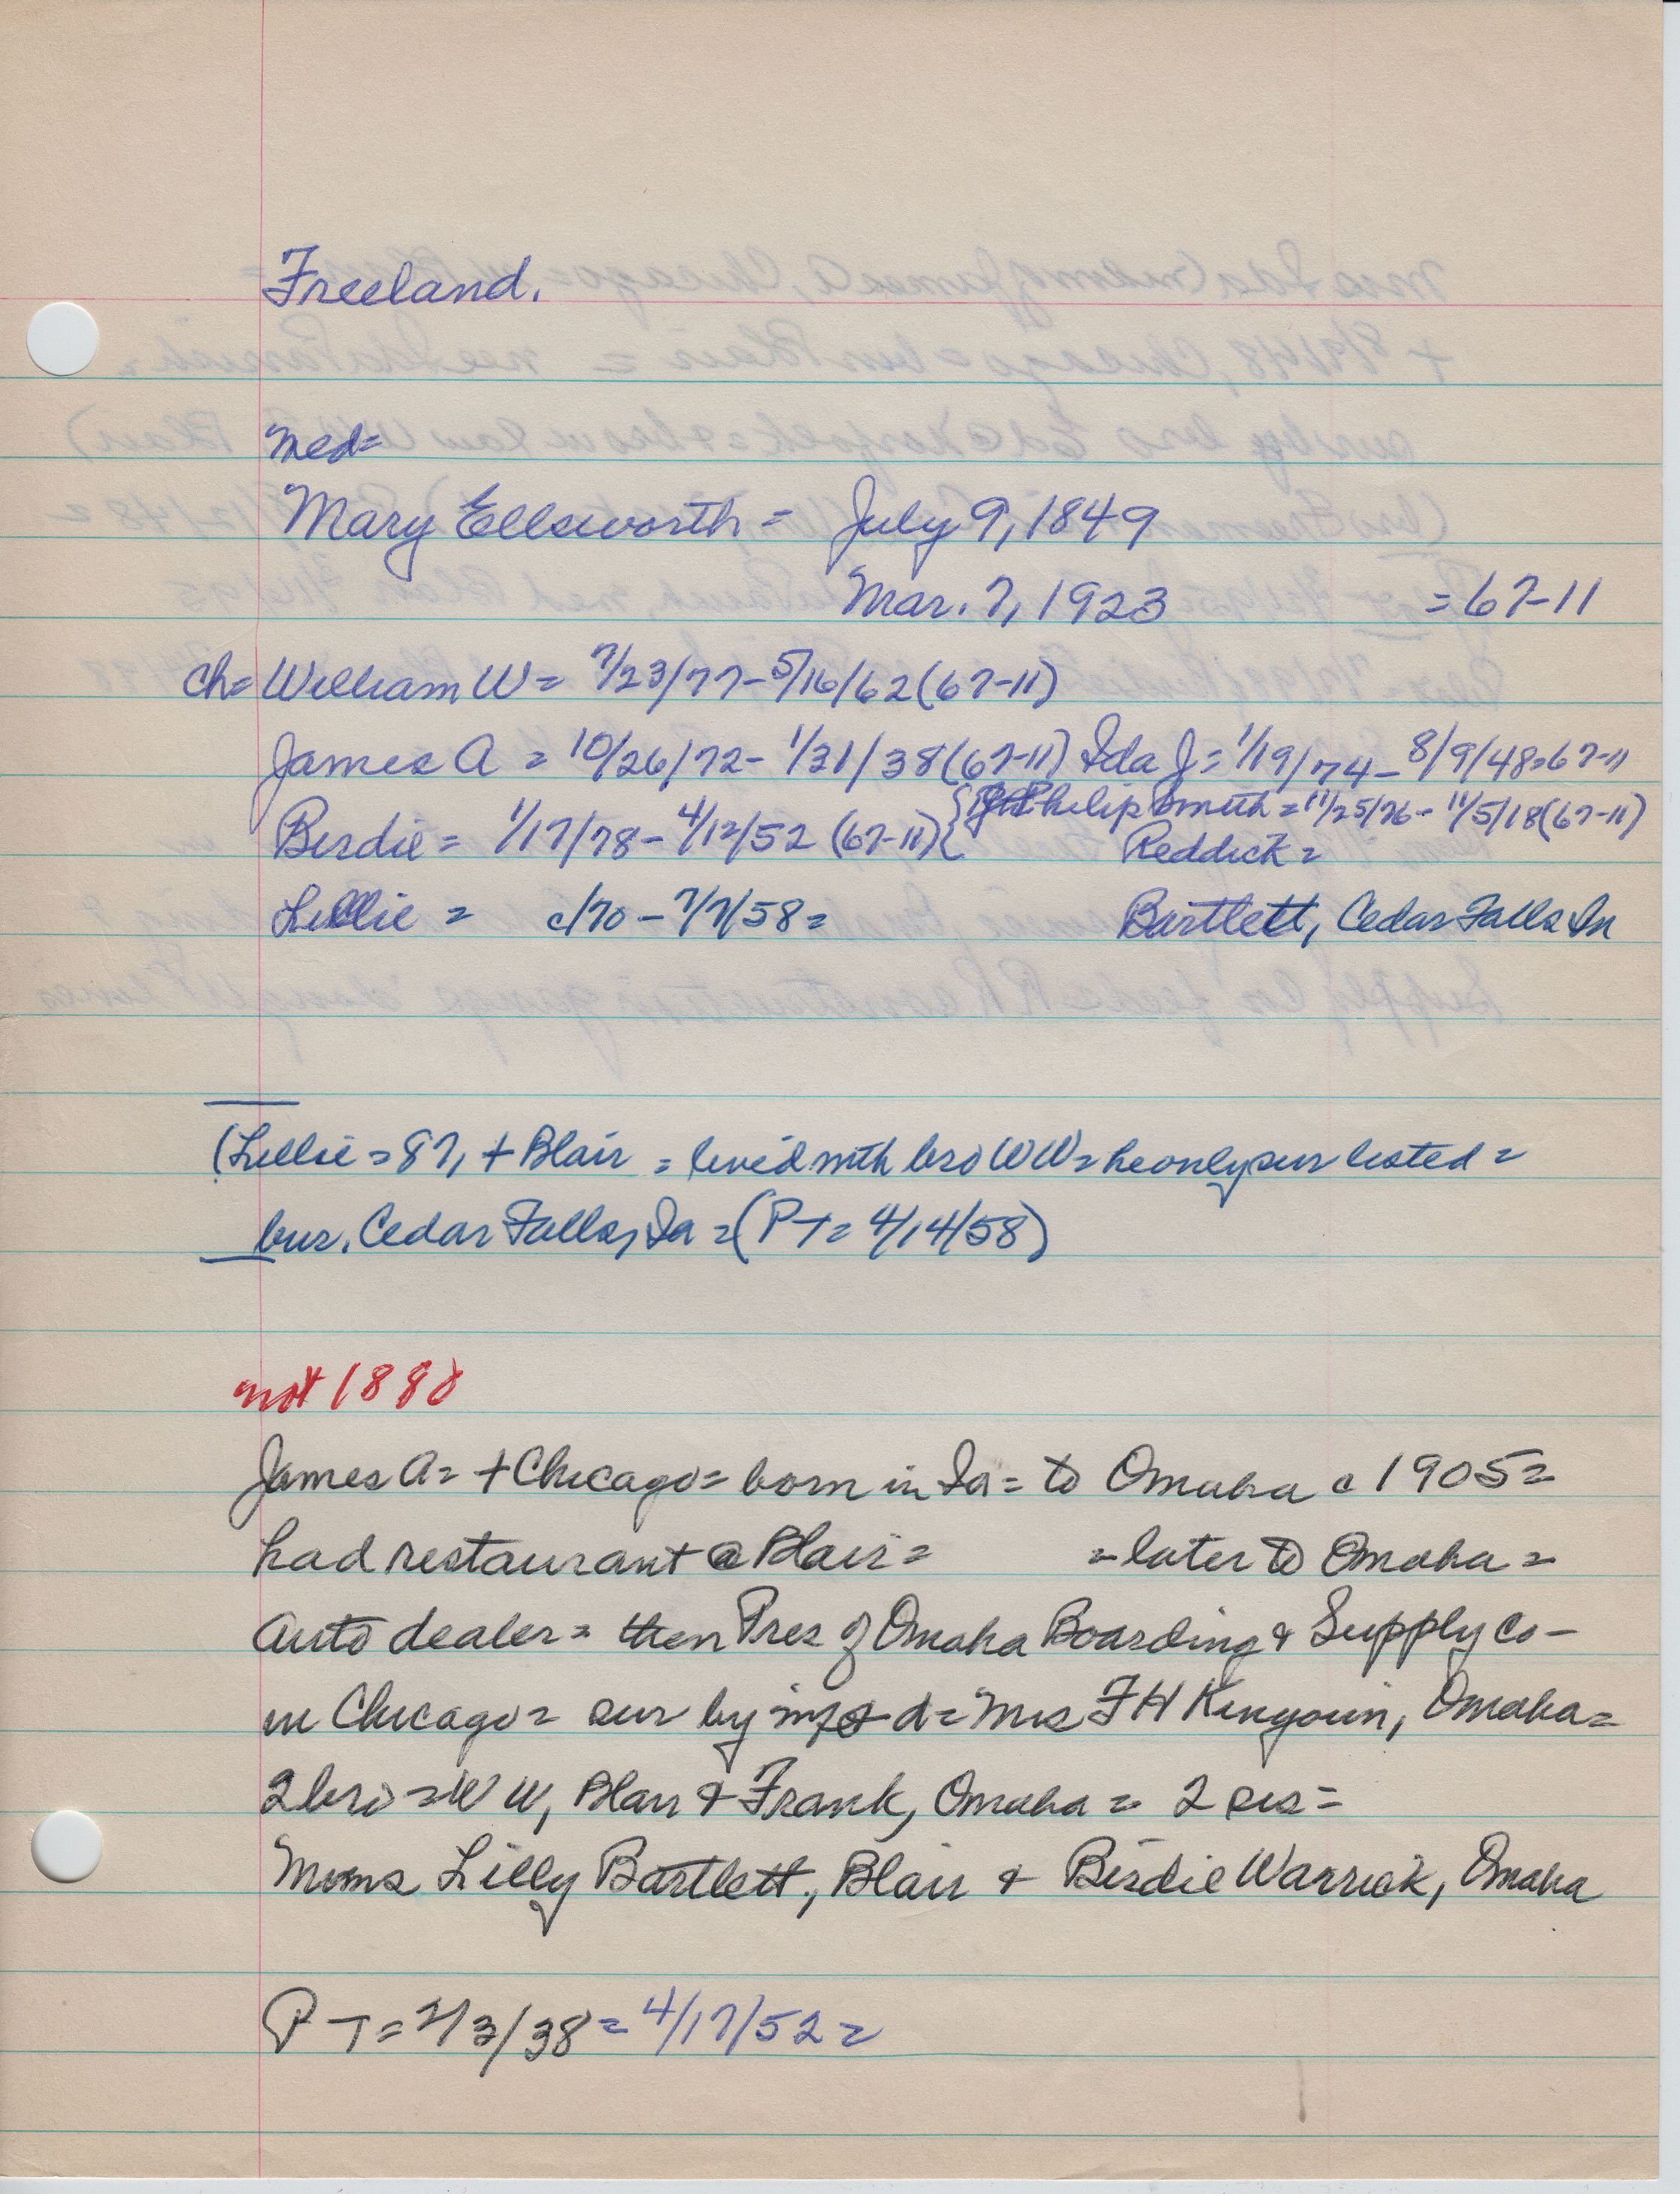 Freeland.
med=
Mary Ellsworth = July 9, 1849
Mar. 7, 1923 = 67-11
ch= William W = 7/23/77 - 5/16/62 (67-11)
James A = 10/26/72 - 1/31/38 (67-11) Ida J = 1/19/74 - 8/9/48 = 67-11
Philip Smith = 11/25/76 - 11/5/18 (67-11)
Birdie = 1/17/78 - 4/12/52 (67-11) Reddick =
Lillie = c/70 - 7/7/58 = Bartlett, Cedar Falls Ia
(Lillie = 87, + Blair = lived with bro WW = he only sur listed =
bur. Cedar Falls, Ia = (PT = 4/14/58)
not 1888
James A = + Chicago = born in Ia = to Omaha c 1905 =
had restaurant @ Blair = = later to Omaha =
Auto dealer = then Pres of Omaha Boarding & Supply Co -
in Chicago = sur by d = Mrs F H Kenyoun, Omaha =
2 bro = W W, Blair & Frank, Omaha = 2 sis =
Mmes Lilly Bartlett, Blair & Birdie Warrick, Omaha
PT = 2/3/38 = 4/17/52 =